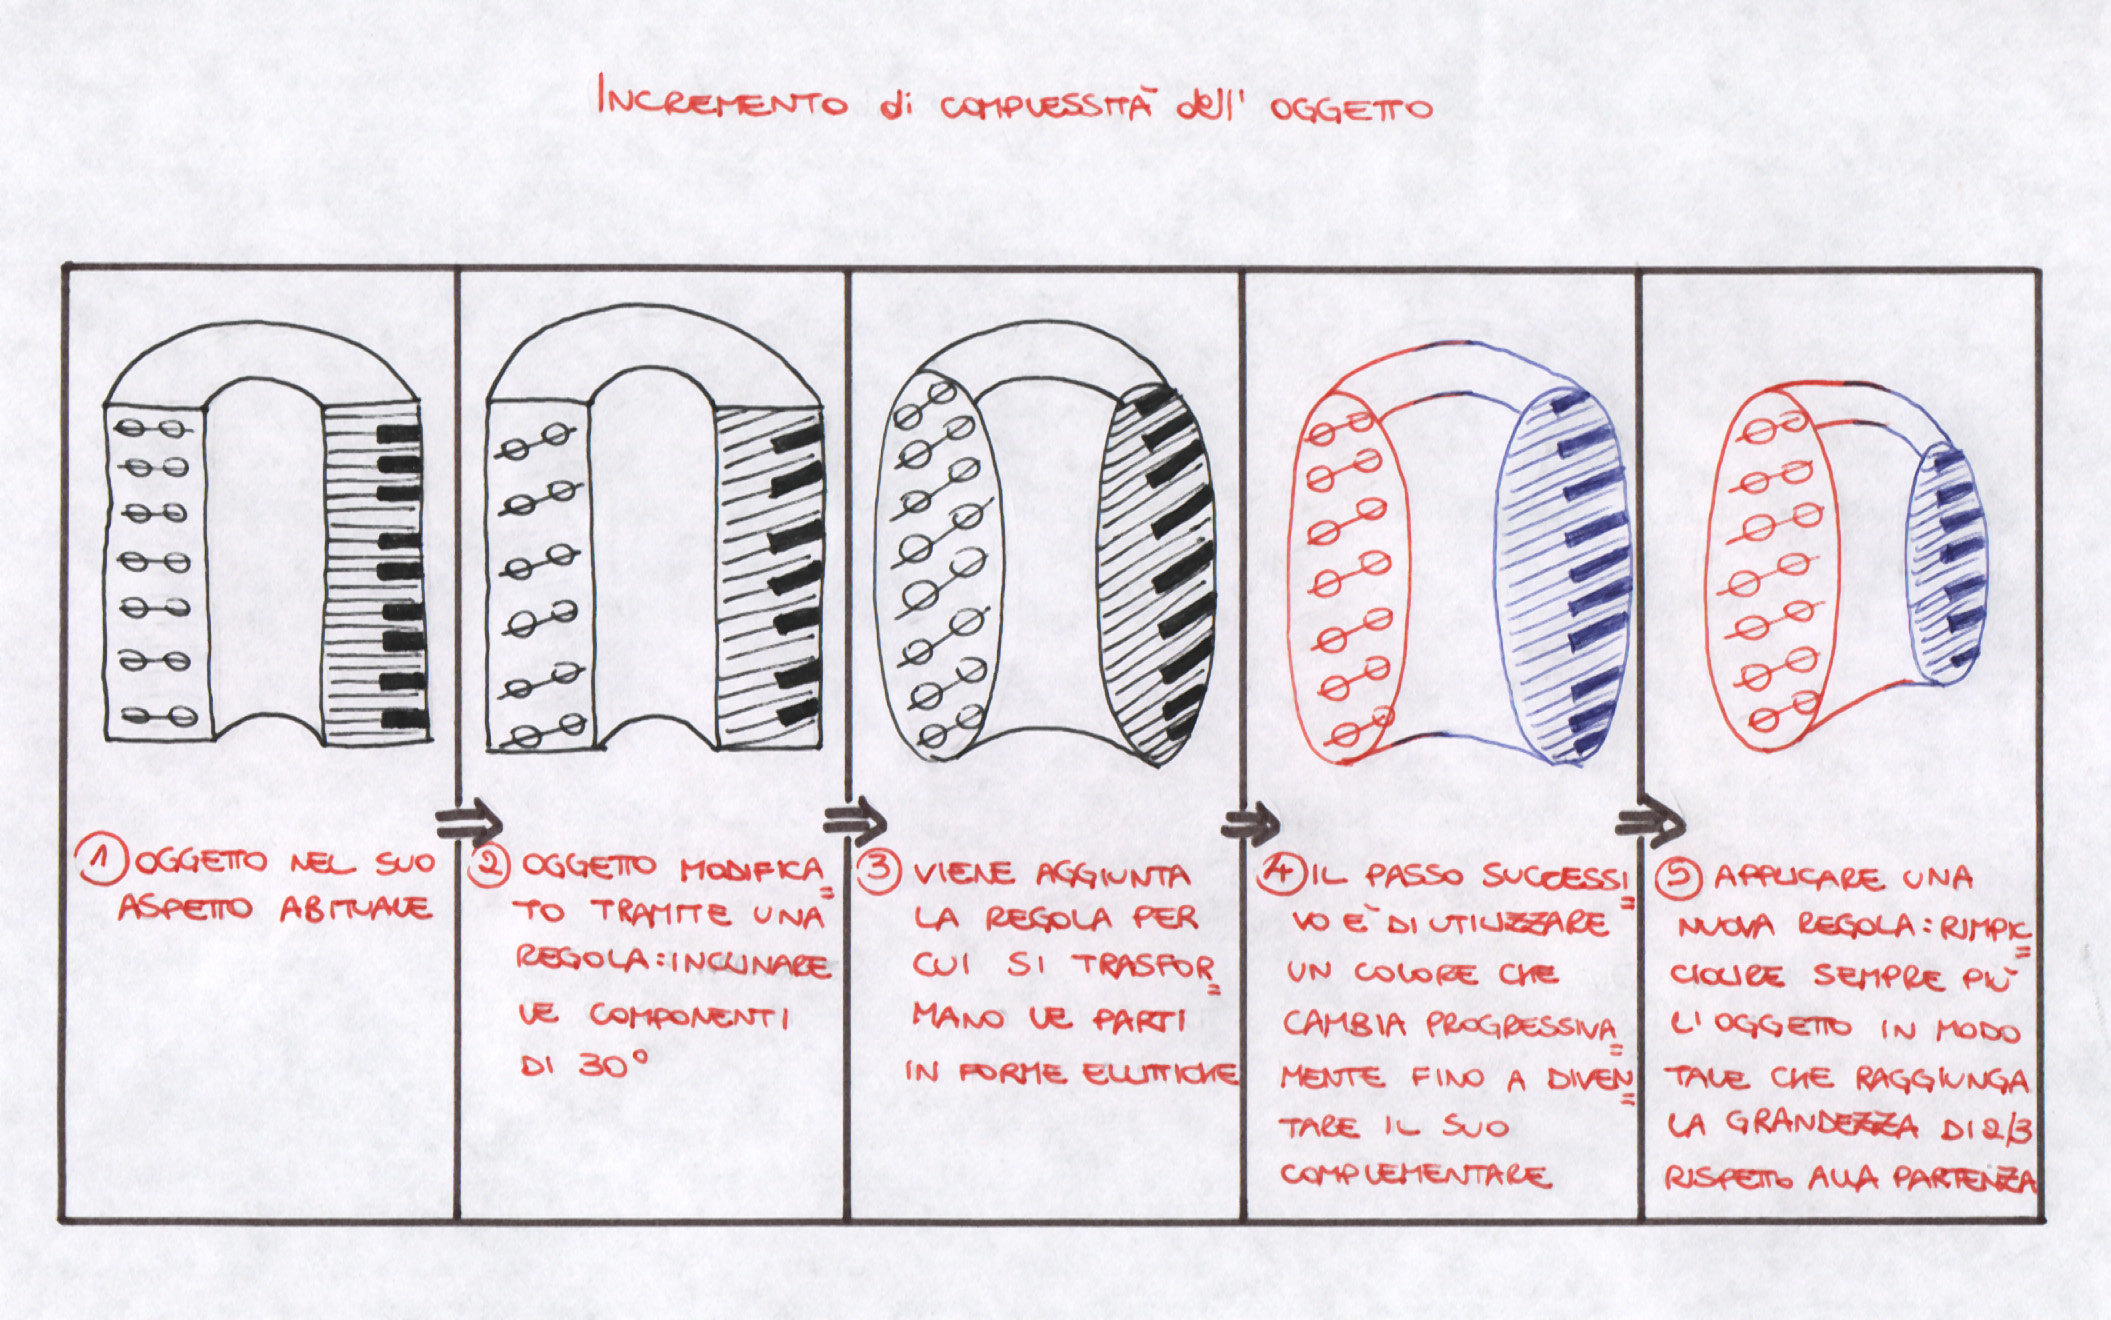 INCREMENTO di COMPLESSITÀ dell' OGGETTO
1 OGGETTO NEL SUO
ASPETTO ABITUALE
2 OGGETTO MODIFICA=
TO TRAMITE UNA
REGOLA: INCLINARE
LE COMPONENTI
DI 30°
3 VIENE AGGIUNTA
LA REGOLA PER
CUI SI TRASFOR=
MANO LE PARTI
IN FORME ELLITTICHE
4 IL PASSO SUCCESSI=
VO E' DI UTILIZZARE
UN COLORE CHE
CAMBIA PROGRESSIVA=
MENTE FINO A DIVEN=
TARE IL SUO
COMPLEMENTARE
5 APPLICARE UNA
NUOVA REGOLA: RIMPIC=
CIOLIRE SEMPRE PIÙ
L'OGGETTO IN MODO
TALE CHE RAGGIUNGA
LA GRANDEZZA DI 2/3
RISPETTO ALLA PARTENZA